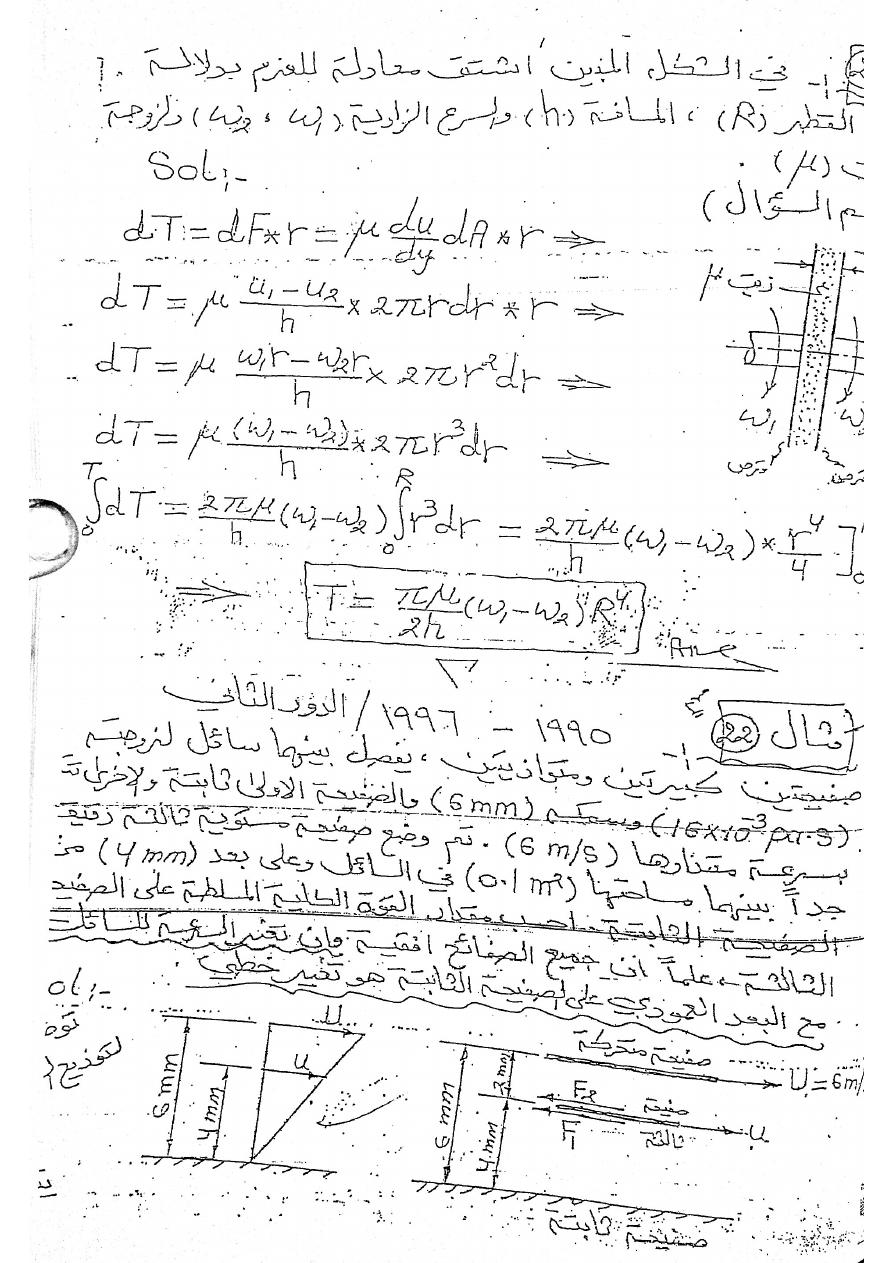 ١- في الشكل المبين اشتق معادلة للعزم بدلالة
القطر (R) ، المسافة (h) والسرع الزاوية (ω₁ ، ω₂) ولزوجة
(μ) .
Sol:-
م السؤال )
dT = dF * r = μ du/dy dA * r ⇒
dT = μ (u₁ - u₂)/h × 2πr dr * r ⇒
زيت μ
dT = μ (ω₁r - ω₂r)/h × 2πr² dr ⇒
dT = μ (ω₁ - ω₂)/h * 2πr³ dr ⇒
ω₁
قرص
∫₀ᵀ dT = 2πμ/h (ω₁ - ω₂) ∫₀ᴿ r³ dr = 2πμ/h (ω₁ - ω₂) * r⁴/4 ]₀
⇒ T = πμ/2h (ω₁ - ω₂) R⁴
Ans
مثال 22
١٩٩٥ - ١٩٩٦ / الدور الثاني
صفيحتين كبيرتين ومتوازيتين ، يفصل بينهما سائل لزوجته
(16×10⁻³ pa.s) وسمكه (6 mm) والصفيحة الاولى ثابتة والاخرى تت
بسرعة مقدارها (6 m/s) . تم وضع صفيحة مستوية ثالثة رقيقة
جداً بينهما مساحتها (0.1 m²) في السائل وعلى بعد (4 mm) من
الصفيحة الثابتة . احسب مقدار القوة الكلية المسلطة على الصفيح
الثالثة ، علماً ان جميع الصفائح افقية وان تغير السرعة للسائل
مع البعد العمودي على الصفيحة الثابتة هو تغير خطي
ol:-
قوة
U
u
6 mm
4 mm
صفيحة متحركة
U = 6 m/
2 mm
6 mm
4 mm
F₂
F₁
صفيحة
ثالثة
u
صفيحة ثابتة